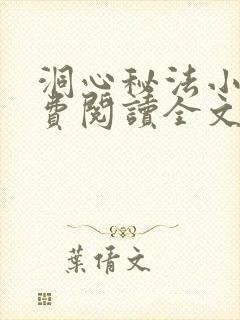 洞心秘法小
費閱讀全文
葉倩文